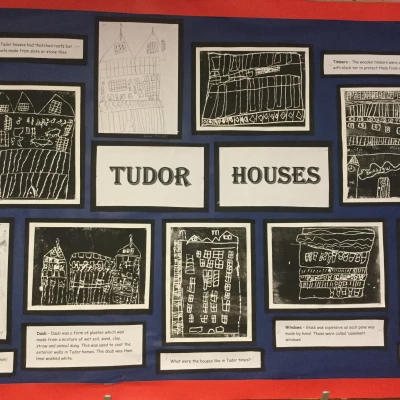 Tudor houses had thatched roofs but
made from slate or stone tiles.
Timbers - The wooden timbers were
with black tar to protect them from
TUDOR
HOUSES
Daub - Daub was a form of plaster which was
made from a mixture of wet soil, sand, clay,
straw and animal dung. This was used to coat the
exterior walls in Tudor homes. The daub was then
lime washed white.
What were the houses like in Tudor times?
Windows - Glass was expensive as each pane was
made by hand. These were called 'casement
windows'